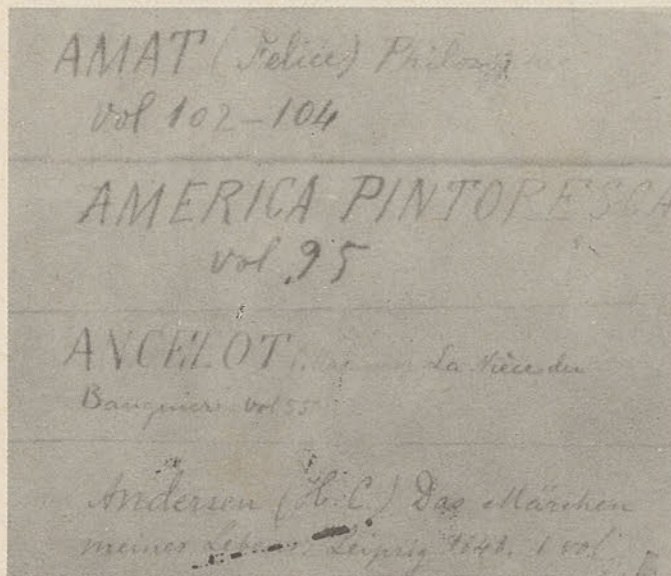 AMAT (Felice)
vol 102-104
AMERICA PINTORESCA
vol 95
ANCELOT La Nièce du
Banquier vol 55
Andersen (H. C.) Das Märchen
meines Lebens. Leipzig 1 vol